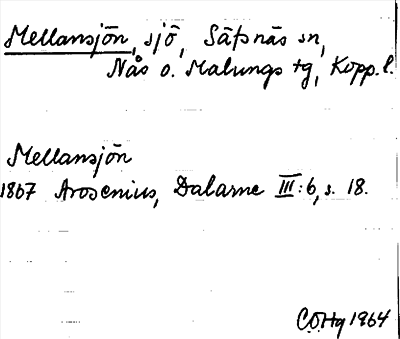 Mellansjön, sjö, Säfsnäs sn,
Nås o. Malungs tg, Kopp. l.
Mellansjön
1867 Arosenius, Dalarne III:6, s. 18.
COHg 1964